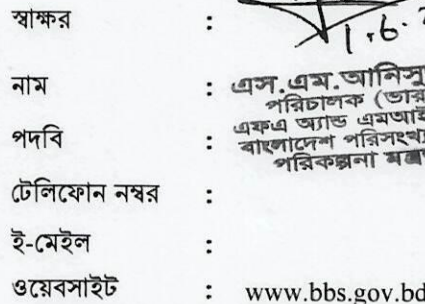 স্বাক্ষর :
1.6.
নাম : এস.এম.আনিসু
পরিচালক (ভার
পদবি : এফএ অ্যান্ড এমআই
বাংলাদেশ পরিসংখ্য
পরিকল্পনা মন্ত্র
টেলিফোন নম্বর :
ই-মেইল :
ওয়েবসাইট : www.bbs.gov.bd